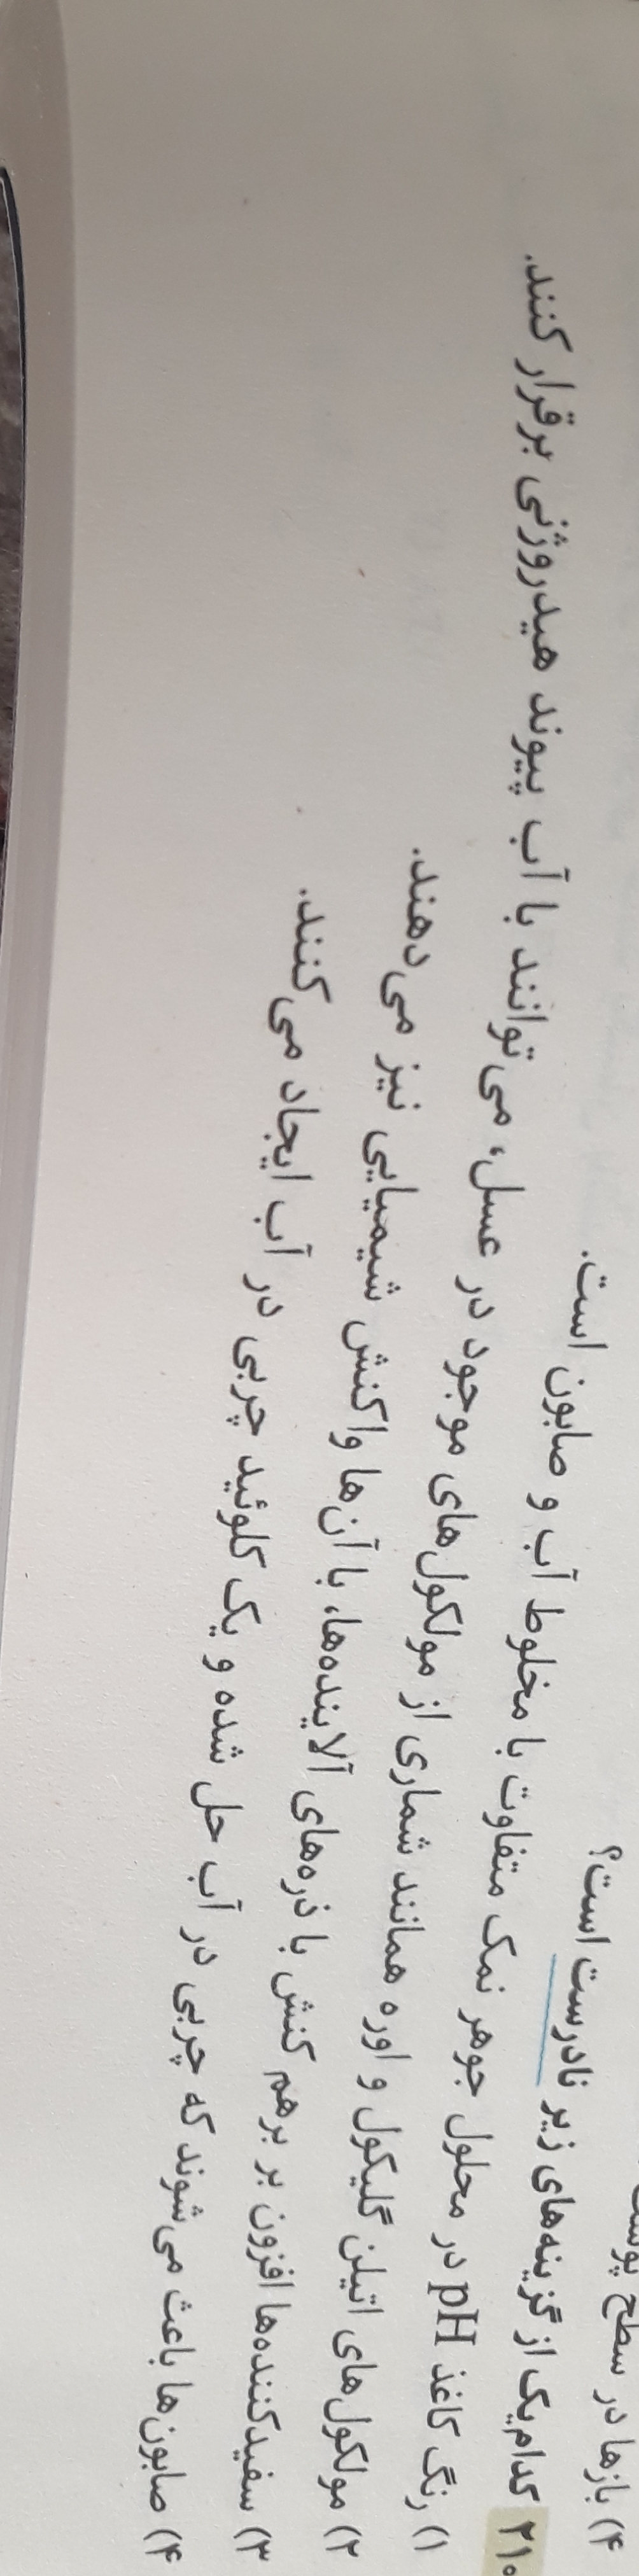 ۴) بازها در سطح پوست
۲۱۰ کدام‌یک از گزینه‌های زیر نادرست است؟
۱) رنگ کاغذ pH در محلول جوهر نمک متفاوت با مخلوط آب و صابون است.
۲) مولکول‌های اتیلن گلیکول و اوره همانند شماری از مولکول‌های موجود در عسل، می‌توانند با آب پیوند هیدروژنی برقرار کنند.
۳) سفیدکننده‌ها افزون بر برهم کنش با ذره‌های آلاینده‌ها، با آن‌ها واکنش شیمیایی نیز می‌دهند.
۴) صابون‌ها باعث می‌شوند که چربی در آب حل شده و یک کلوئید چربی در آب ایجاد می‌کنند.